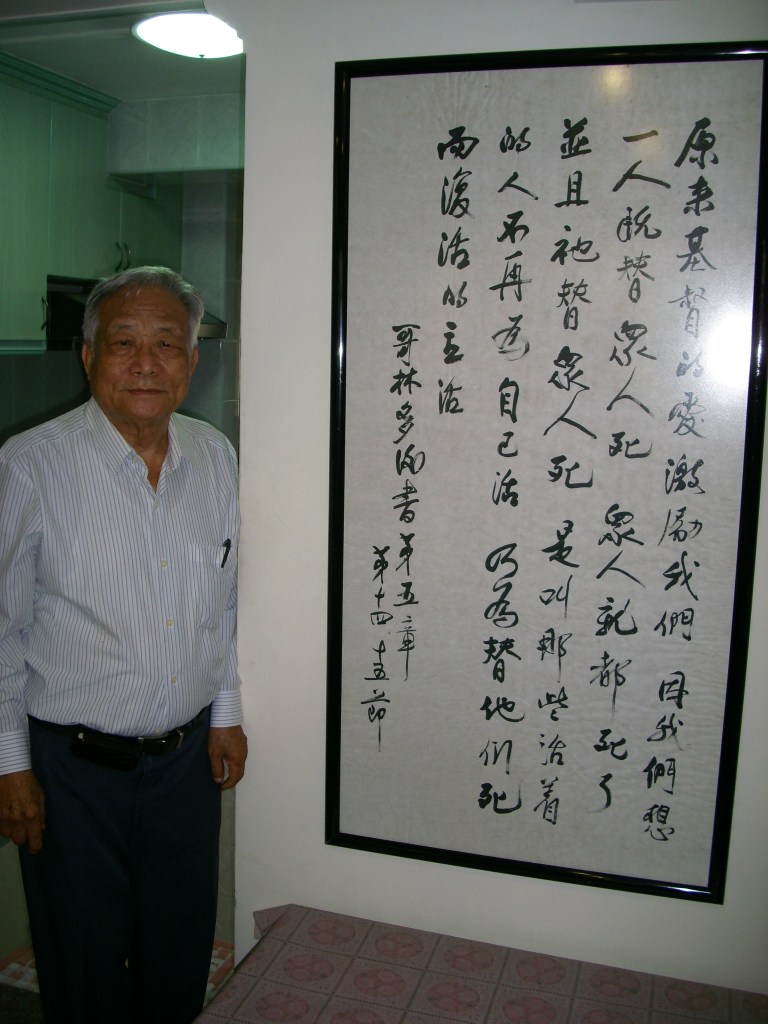 原来基督的愛激勵我們 因我們想
一人既替眾人死 眾人就都死了
並且祂替眾人死 是叫那些活着
的人不再為自己活 乃為替他们死
而復活的主活
哥林多後書第五章
第十四、十五節